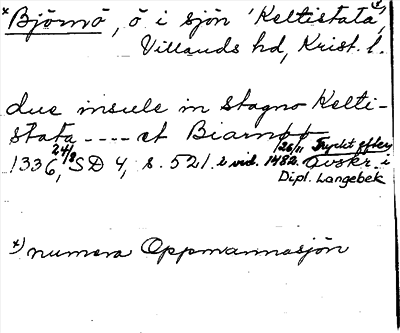 *Björnö, ö i sjön 'Keltistata*)',
Villands hd, Krist. l.
due insule in stagno Kelti-
stata ---- et Biarnøø
1336 24/8, SD 4, s. 521. i vid. 26/11 1482. Tryckt efter
avskr. i
Dipl. Langebek
*) numera Oppmannasjön